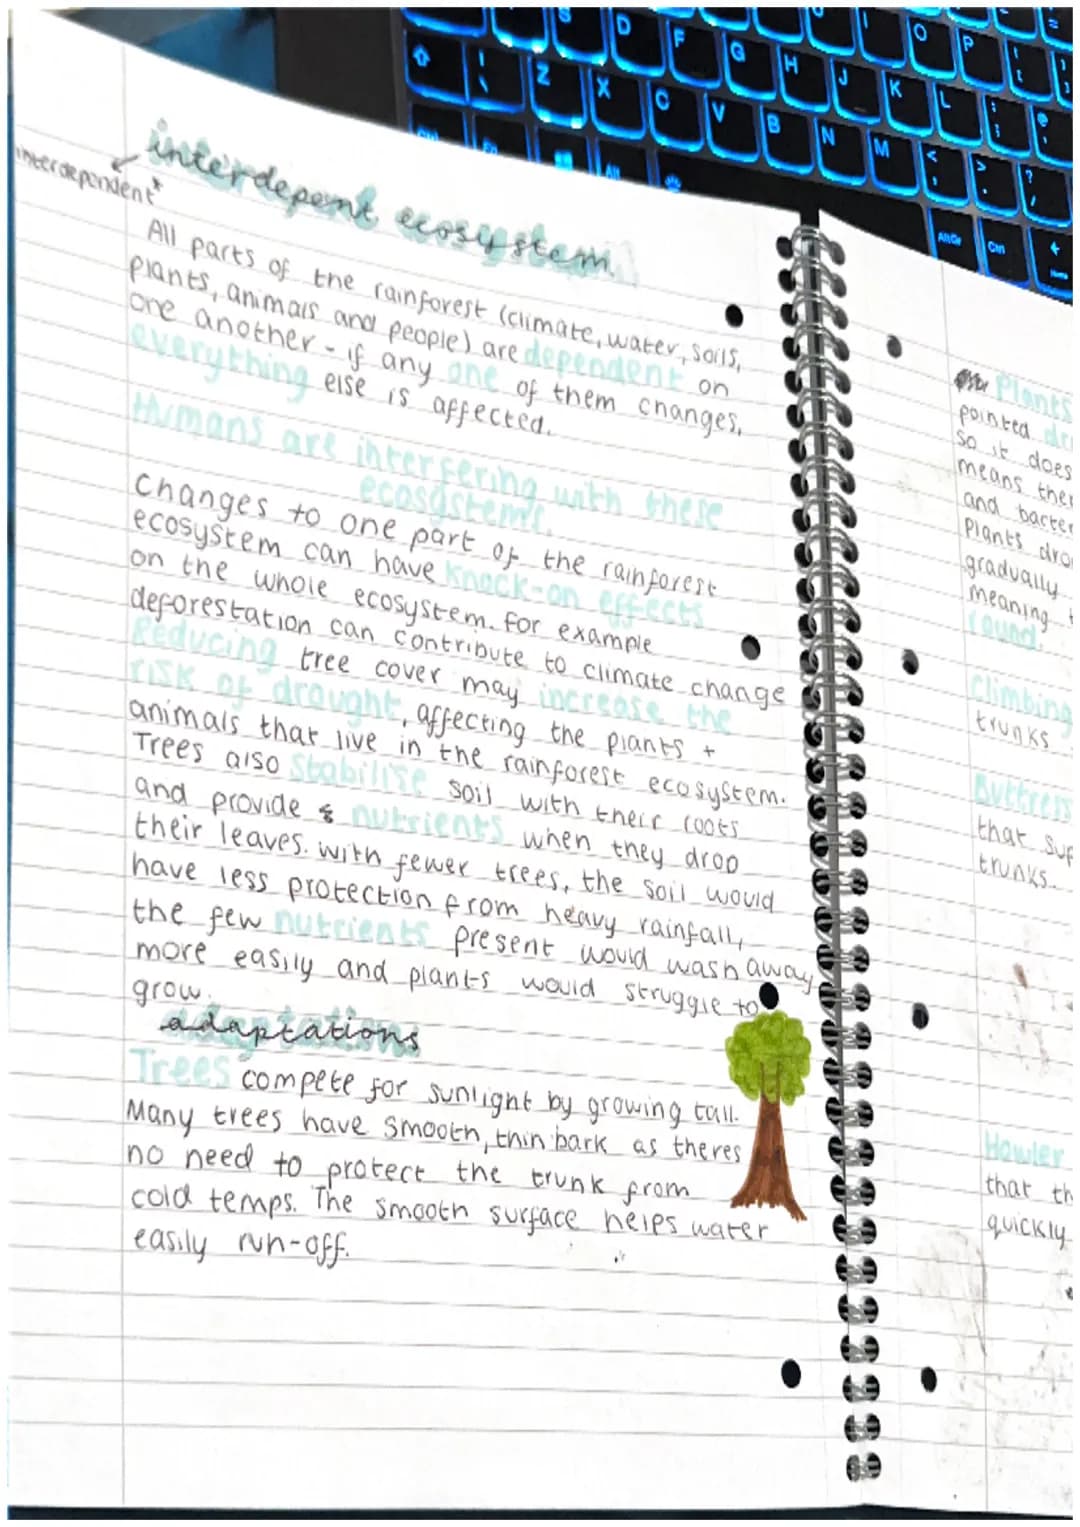 interdepent ecosystem
interdependent*
All parts of the rainforest (climate, water, soils,
plants, animals and people) are dependent on
one another - if any one of them changes,
everything else is affected.
Humans are interfering with these
ecosystems.
Changes to one part of the rainforest
ecosystem can have knock-on effects
on the whole ecosystem. for example
deforestation can contribute to climate change
Reducing tree cover may increase the
risk of draught, affecting the plants +
animals that live in the rainforest ecosystem.
Trees also Stabilise soil with their roots
and provide nutrients when they drop
their leaves. with fewer trees, the soil would
have less protection from heavy rainfall,
the few nutrients present would wash away
more easily and plants would struggle to
grow.
adaptations
Trees compete for sunlight by growing tall.
Many trees have smooth, thin bark as theres
no need to protect the trunk from
cold temps. The smooth surface helps water
easily run-off.
Plants
pointed
so it does
means
and
Plants
gradually
meaning
round.
Climbing
trunks
Buttress
that
trunks.
Howler
that
quickly
S
D
F
G
H
J
K
L
O
P
Z
X
C
V
B
N
M
Alt
AltGr
Ctrl
Home